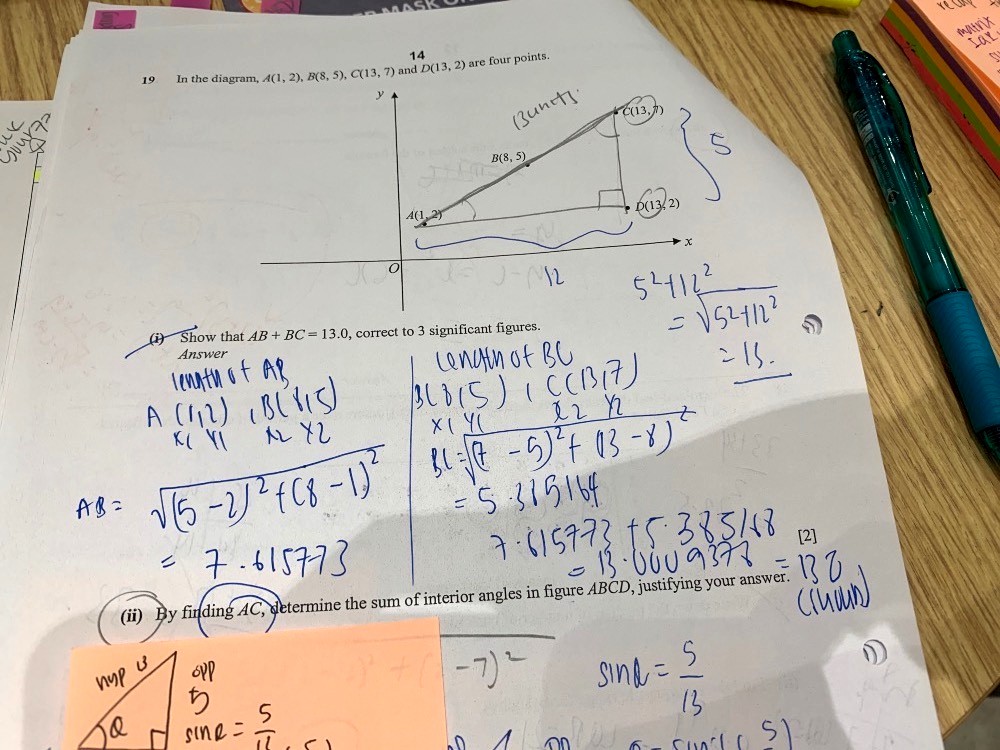 MASK
14
19 In the diagram, A(1, 2), B(8, 5), C(13, 7) and D(13, 2) are four points.
y
13units.
C(13, 7)
5
B(8, 5)
A(1, 2)
D(13, 2)
x
O
12
5²+12²
= √5²+12²
= 13.
(i) Show that AB + BC = 13.0, correct to 3 significant figures.
Answer
length of AB
A (1,2) , B(8,5)
x1 y1 x2 y2
AB = √(5-2)²+(8-1)²
= 7.615773
length of BC
B(8,5) , C(13,7)
x1 y1 x2 y2
BC = √(7-5)²+(13-8)²
= 5.385164
7.615773 + 5.385168
= 13.0009378 = 130
(shown)
[2]
(ii) By finding AC, determine the sum of interior angles in figure ABCD, justifying your answer.
-7)²
sinα = 5/13
hyp 13
opp
5
α
sinα = 5/13